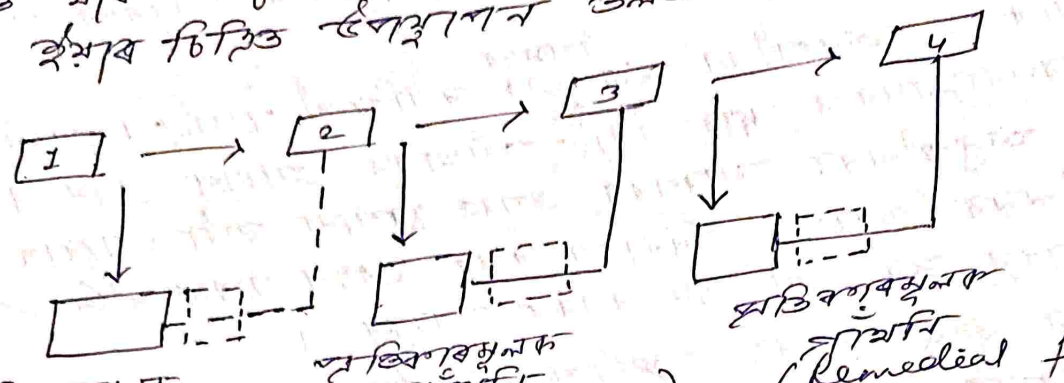 ইয়াৰ চিত্ৰিত উপস্থাপন
1 2 3 4
প্ৰতিকাৰমূলক
প্ৰতিকাৰমূলক
গাঁথনি
(Remedial